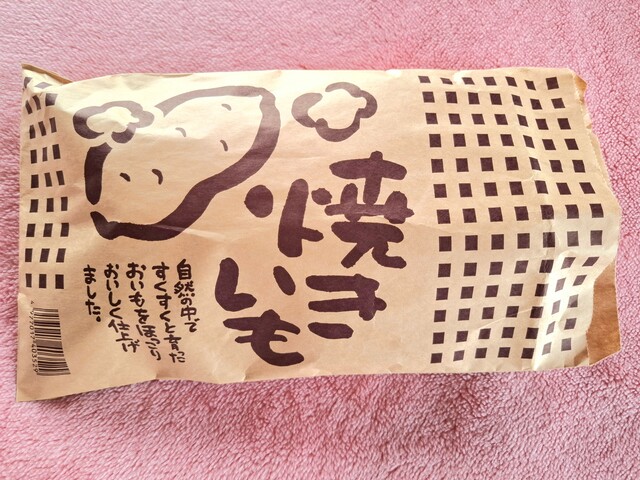 焼き
いも
自然の中で
すくすくと育った
おいもをほっくり
おいしく仕上げ
ました。